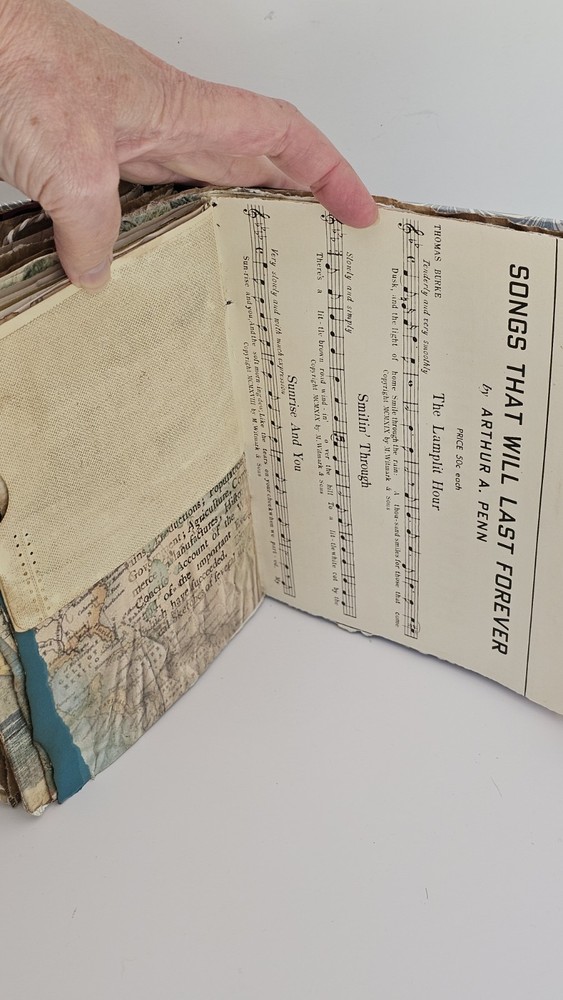 SONGS THAT WILL LAST FOREVER
by ARTHUR A. PENN
PRICE 50c each
The Lamplit Hour
THOMAS BURKE
Tenderly and very smoothly
Dusk, and the light of home Smile through the rain: A thou-sand smiles for those that come
Copyright MCMXIX by M. Witmark & Sons
Smilin' Through
Slowly and simply
There's a lit-tle brown road wind-in' o'ver the hill To a lit-tle white cot by the
Copyright MCMXIX by M. Witmark & Sons
Sunrise And You
Very slowly and with much expression
Sun-rise and you, And the soft morn-ing dew, Like the tears on your cheek when we part-ed, My
Copyright MCMXVIII by M. Witmark & Sons
Agriculture,
Manufactures,
Concise Account of the
of the important
have succeeded,